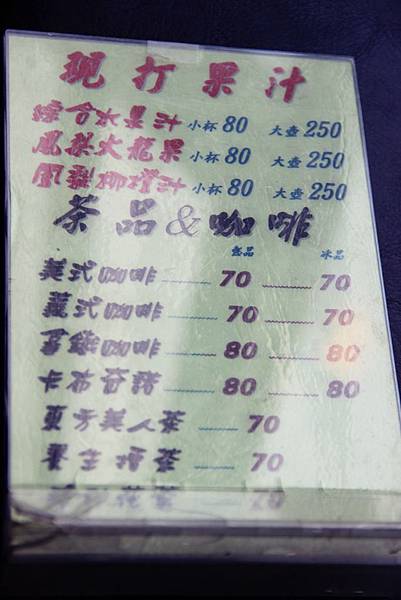 現打果汁
綜合水果汁 小杯80 大壺250
鳳梨火龍果 小杯80 大壺250
鳳梨柳橙汁 小杯80 大壺250
茶品&咖啡
熱品 冰品
美式咖啡 70 70
義式咖啡 70 70
拿鐵咖啡 80 80
卡布奇諾 80 80
東方美人茶 70
養生擂茶 70
花茶 70